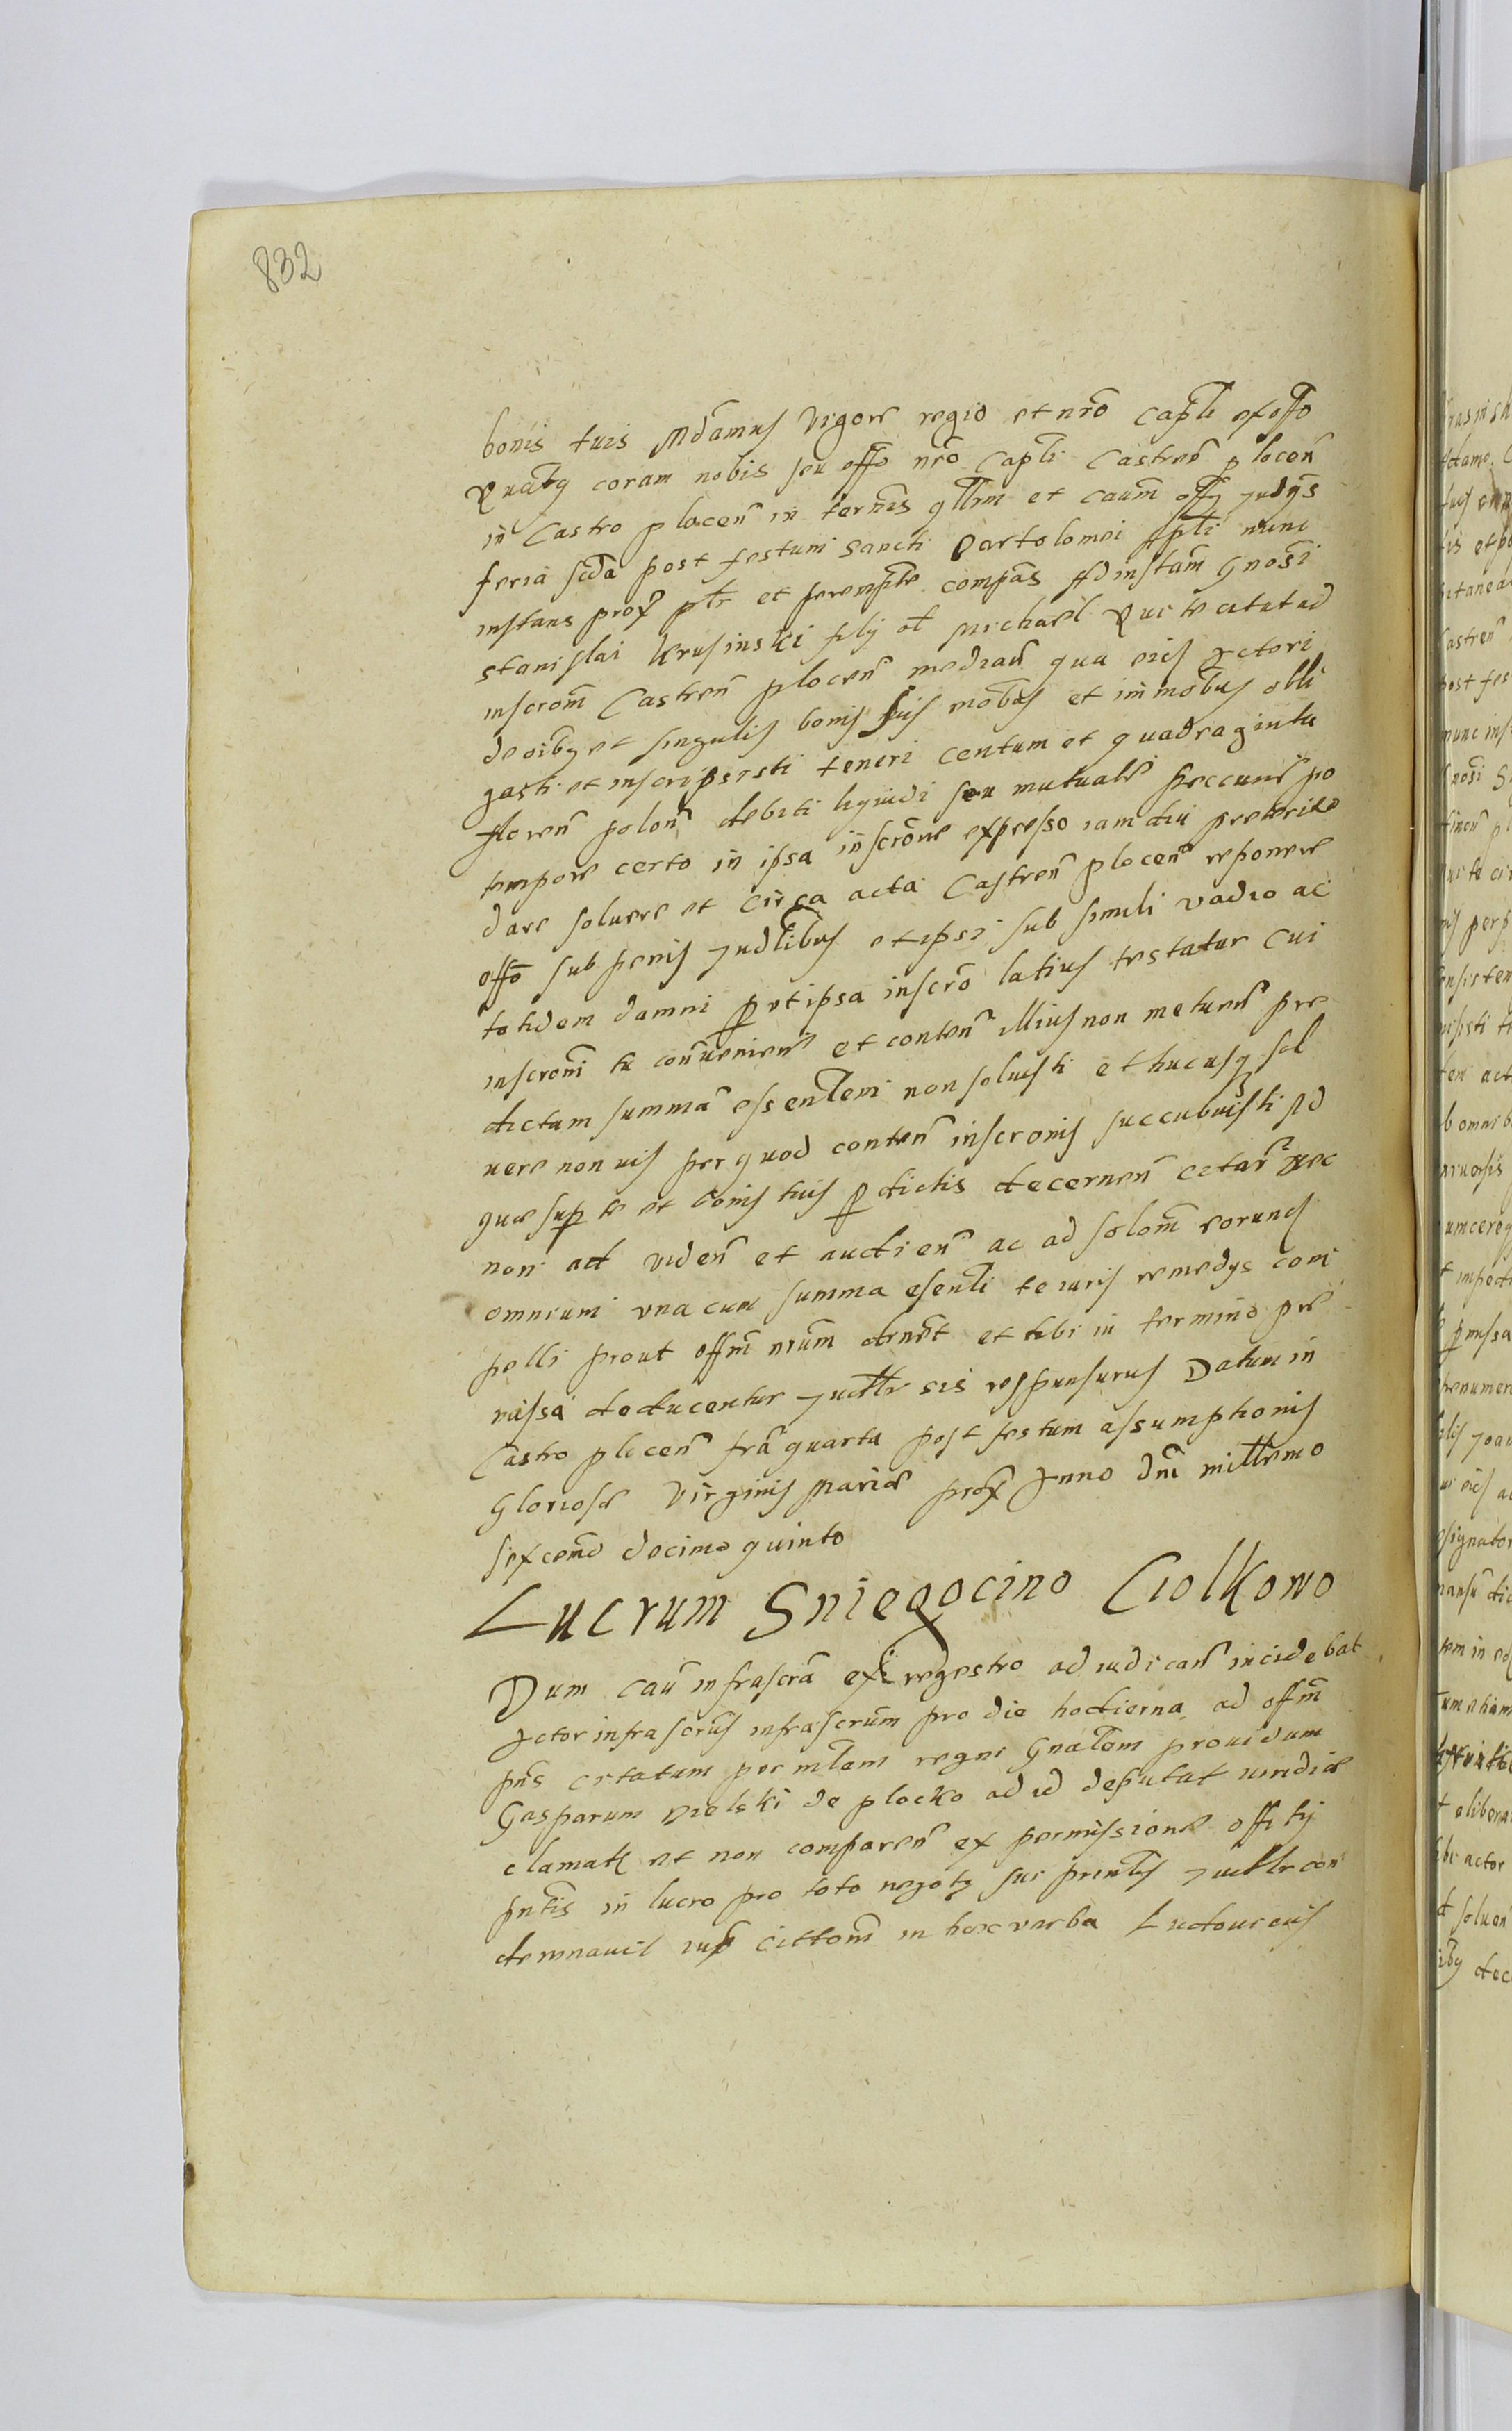 832
bonis tuis Mdamus vigore regio et nro Capli ex offo
Quatq coram nobis seu offo nro Capli Castren plocen
in Castro plocen in termis qllim et caum offy Judys
feria scda post festum Sancti Bartolomei Apli nunc
instans prox ptr et perempte compas Ad instam Gnosi
Stanislai Krusinski fily ol Michael Qui te citat ad
inscrom Castren plocen median qua eids Actori
de oibq et singulis bonis suis mobus et immobus obli
gasti et inscripsisti teneri centum et quadraginta
floren polon debiti liquidi seu mutuale peccune pro
tempore certo in ipsa inscrone expresso iam diu preterito
dare soluere et circa acta Castren plocen reponere
offo sub penis Judlibus et ipsi sub simili vadio ac
totidem damni put ipsa inscro latius testatur Cui
inscroni tu conueniens et conten illius non metuens pre
dictam summa essentem non soluisti et hucusq sol
uere non uis per quod conten inscronis succubuisti Ad
quae sup te et bonis tuis pdictis decernen citaris nec
non ad viden et audien ac ad solom eorund
omnium una cum summa esenti te iuris remedys com
pelli prout offm nrum decret et tibi in termino pre
missa deducentur Judtr sis responsurus Datum in
Castro plocen fra quarta post festum assumptionis
Gloriosae Virginis Mariae prox Anno Dni millemo
sexcemo decimo quinto
Lucrum Sniegocino Ciolkowo
Dum cau infrascra ex regestro ad iudican incidebat
Actor infrascrus infrascrum pro die hodierna ad offm
pns citatum per mlem regni Gnalem prouidum
Gasparum Bielski de plocko ad id deputat uindice
clamat et non comparen ex permissione offity
pntis in lucro pro toto negoty sui prentis Judtr con
demnauit iux cittom in haec verba Ludouicus